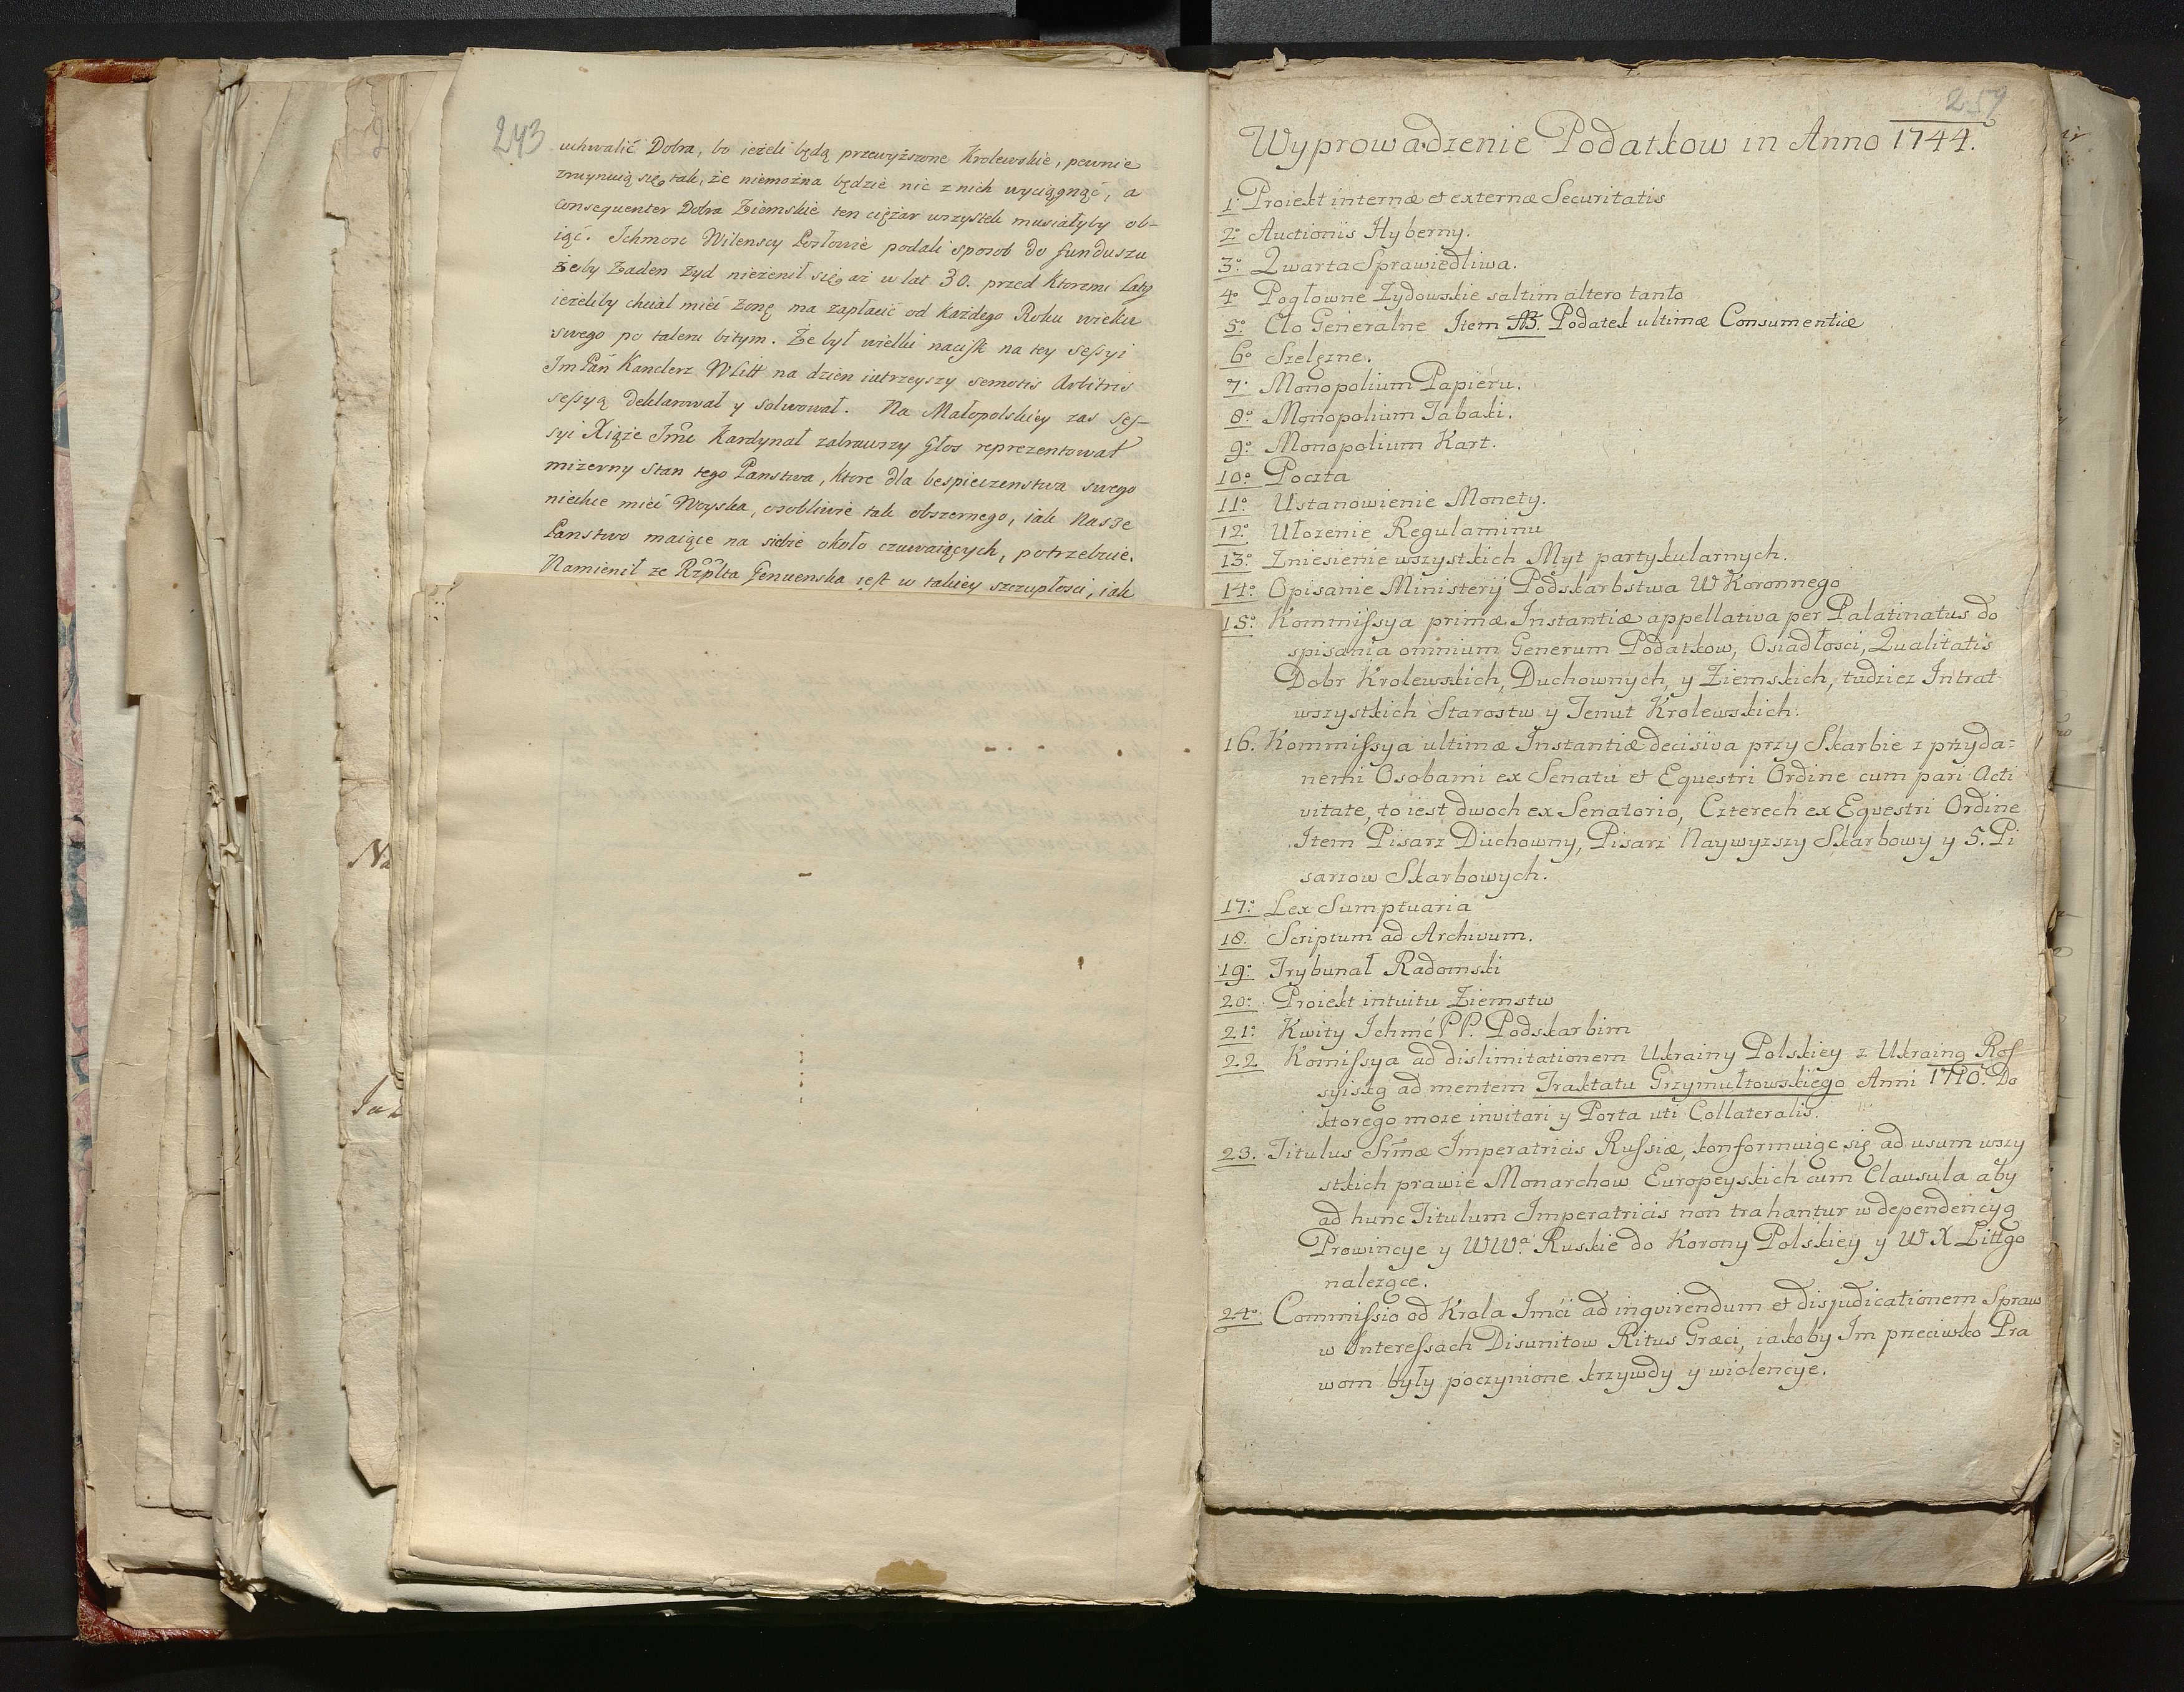 243
uchwalić Dobra, bo ieżeli będą przewyższone Krolewskie, pewnie
zruynuią się tak, że niemożna będzie nic z nich wyciągnąć, a
consequenter Dobra Ziemskie ten ciężar wszystek musiałyby ob-
iąć. Ichmośc Wilenscy Posłowie podali sposob do funduszu
żeby Żaden Żyd nieżenił się aż w lat 30. przed ktoremi laty
ieżeliby chciał mieć Żonę ma zapłacić od każdego Roku wieku
swego po taleru bitym. Że był wielki nacisk na tey sessyi
Im Pan Kanclerz WLitt na dzien iutrzeyszy semotis Arbitris
sessyą deklarował y solwował. Na Małopolskiey zas ses-
syi Xiąże Jmć Kardynał zabrawszy Głos reprezentował
mizerny stan tego Panstwa, ktore dla bespieczenstwa swego
niechce mieć Woyska, osobliwie tak obszernego, iak Nasze
Panstwo maiące na siebie około czuwaiących, potrzebuie.
Namienił ze Rzplta Genuenska iest w takiey szczupłości, iak
Na
259
Wyprowadzenie Podatkow in Anno 1744.
1º Proiekt internæ et externæ Securitatis
2º Auctionis Hyberny.
3º Qwarta Sprawiedliwa.
4º Pogłowne Zydowskie saltim altero tanto
5º Clo Generalne Item NB. Podatek ultimæ Consumentiæ
6º Szelęzne.
7º Monopolium Papieru.
8º Monopolium Tabaki.
9º Monopolium Kart.
10º Poczta
11º Ustanowienie Monety.
12º Ułozenie Regulaminu
13º Zniesienie wszystkich Myt partykularnych.
14º Opisanie Ministerij Podskarbstwa W Koronnego
15º Kommissya primæ Instantiæ appellativa per Palatinatus do
spisania omnium Generum Podatkow, Osiadłosci, Qualitatis
Dobr Krolewskich, Duchownych, y Ziemskich, tudziez Intrat
wszystkich Starostw y Tenut Krolewskich.
16. Kommissya ultimæ Instantiæ decisiva przy Skarbie z przyda=
nemi Osobami ex Senatu et Equestri Ordine cum pari Acti
vitate, to iest dwoch ex Senatorio, Czterech ex Eqvestri Ordine
Item Pisarz Duchowny, Pisarz Naywyzszy Skarbowy y 5. Pi
sarzow Skarbowych.
17º Lex Sumptuaria
18. Scriptum ad Archivum.
19º Trybunał Radomski
20º Proiekt intuitu Ziemstw
21º Kwity Ichmć PP. Podskarbim
22 Komissya ad dislimitationem Ukrainy Polskiey z Ukrainą Ros
syiską ad mentem Traktatu Grzymułtowskiego Anni 1710. Do
ktorego moze invitari y Porta uti Collateralis.
23. Titulus Srmæ Imperatricis Russiæ, konformuiąc się ad usum wszy
stkich prawie Monarchow Europeyskich cum Clausula aby
ad hunc Titulum Imperatricis non trahantur w dependencyą
Prowincye y WWa Ruskie do Korony Polskiey y W X Littgo
nalezące.
24º Commissio od Krola Jmci ad inqvirendum et disjudicationem Spraw
w Interessach Disunitow Ritus Græci, iakoby Im przeciwko Pra
wom były poczynione krzywdy y wiolencye.